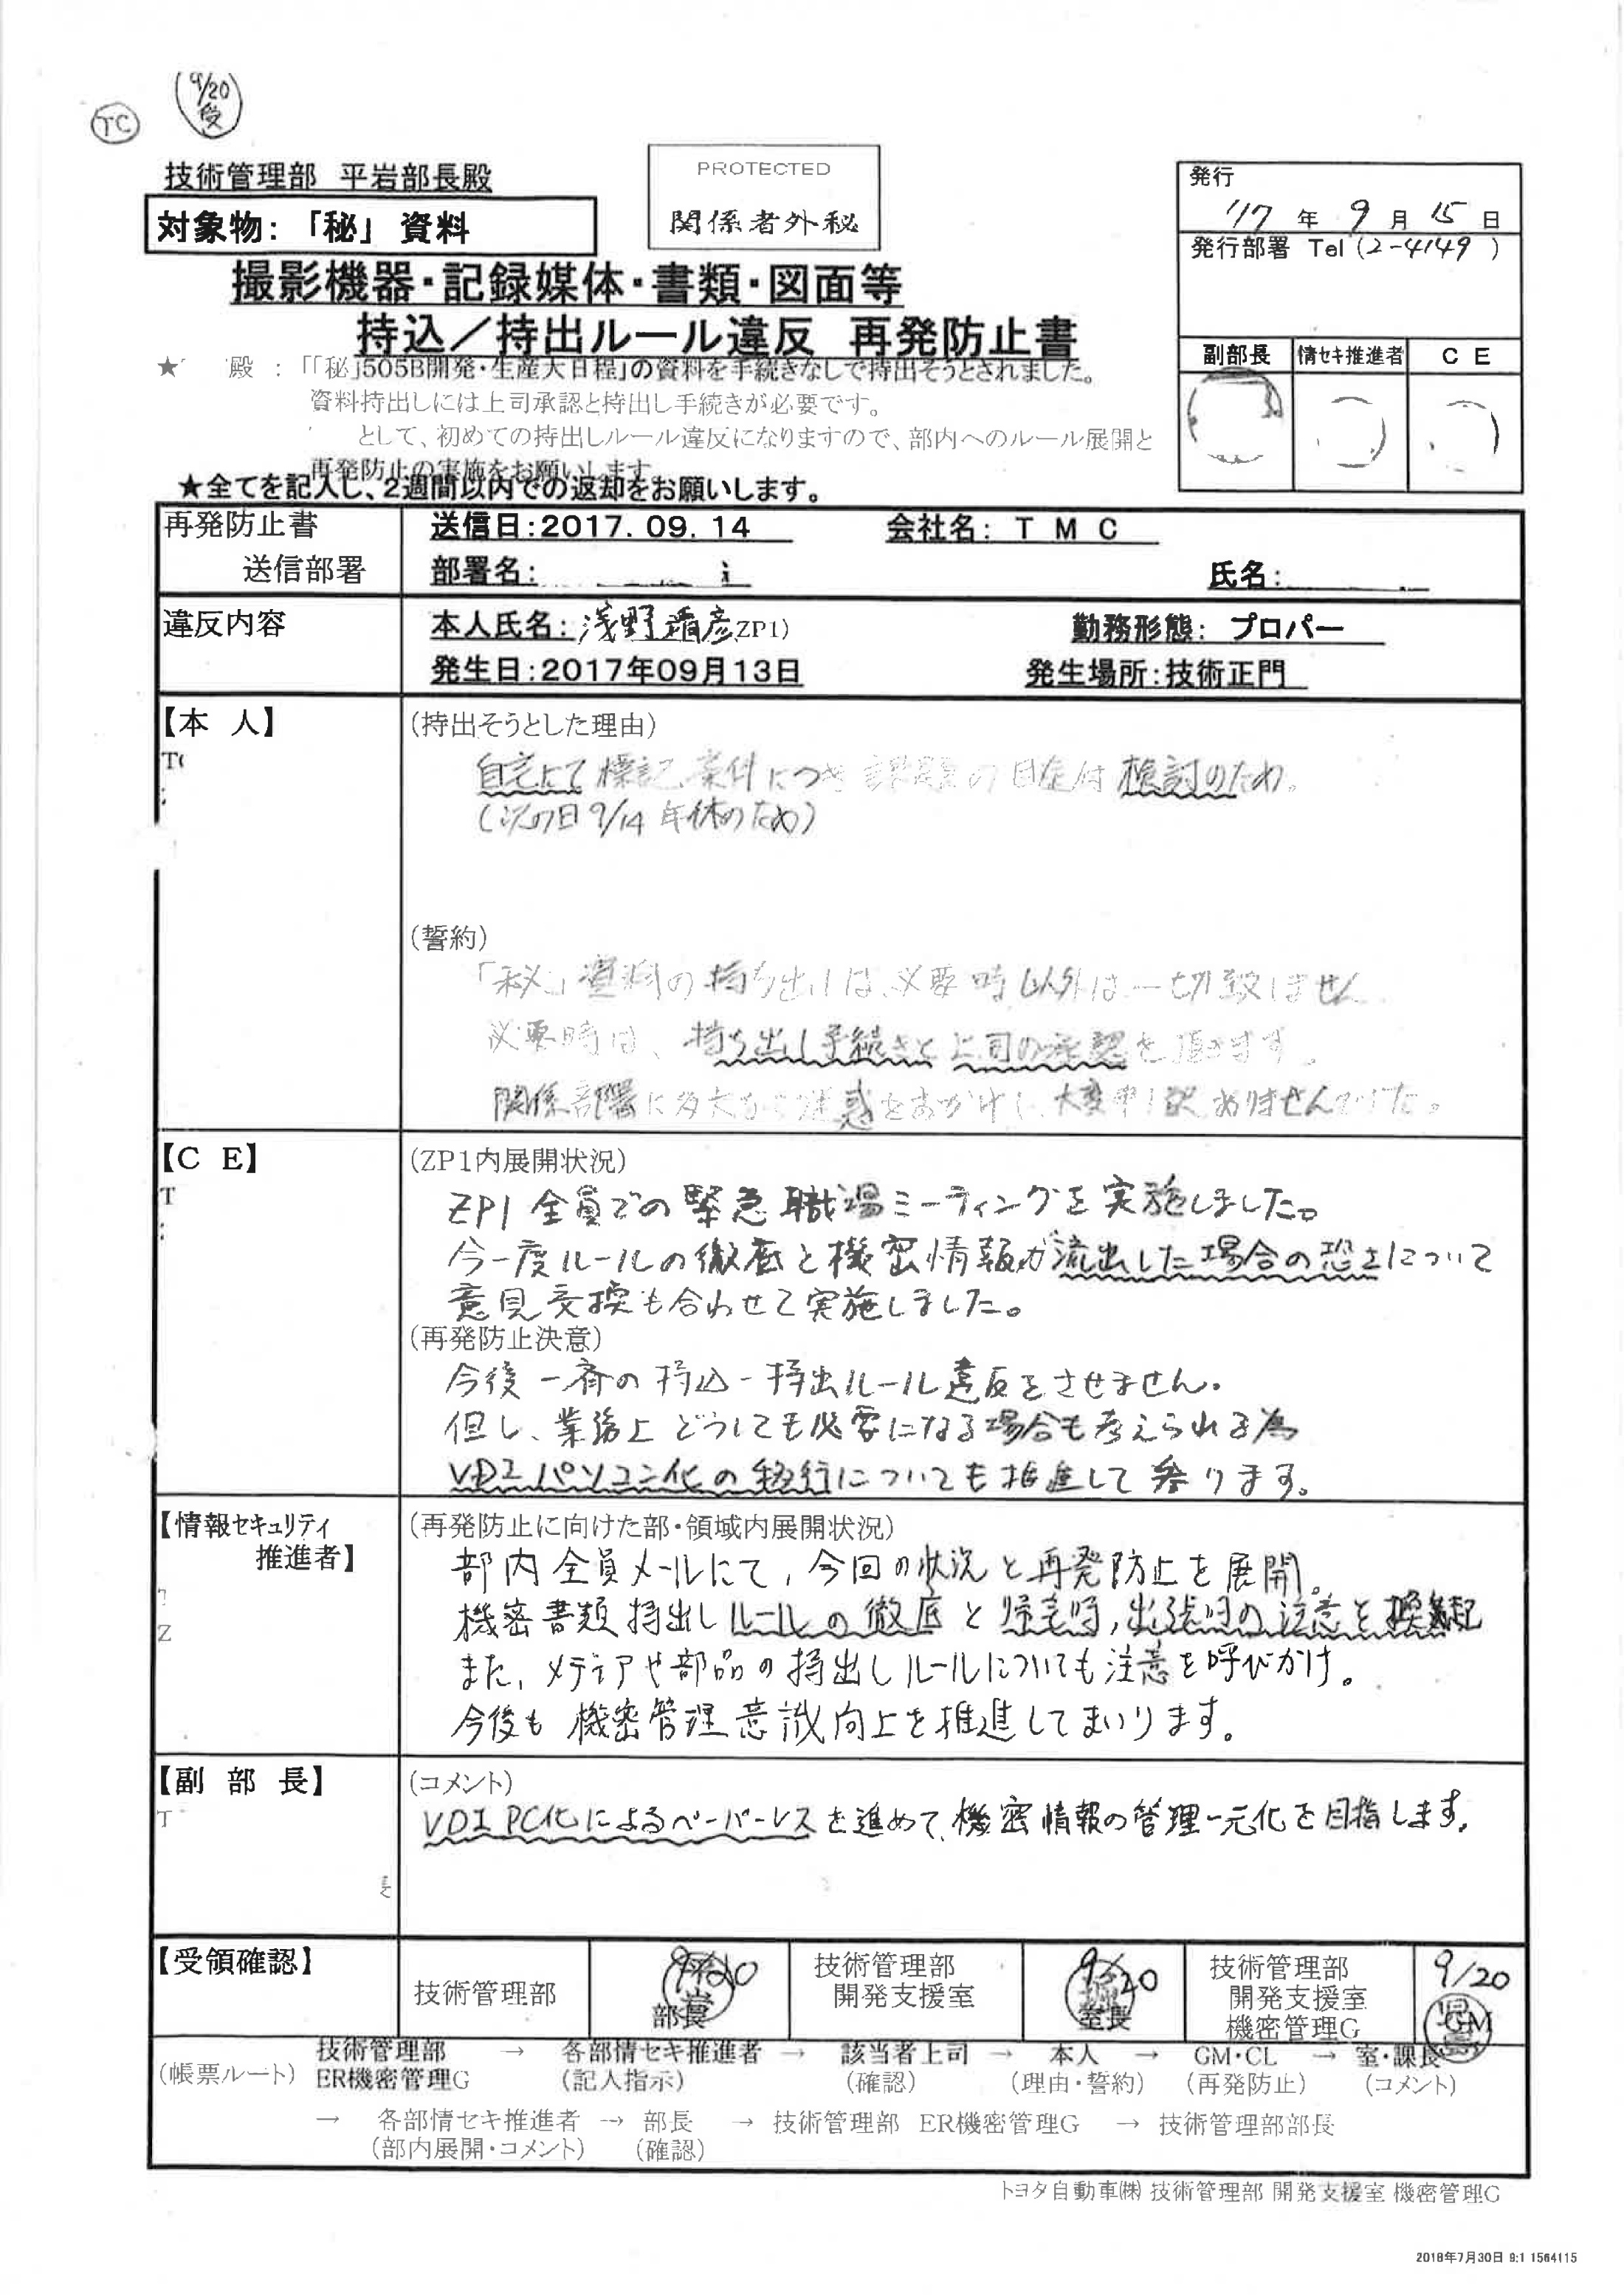 9/20
受
TC
技術管理部 平岩部長殿
PROTECTED
関係者外秘
対象物：「秘」資料
発行
'17年 9月 15日
発行部署 Tel (2-4149 )
撮影機器・記録媒体・書類・図面等
持込／持出ルール違反 再発防止書
副部長 情セキ推進者 C E
★ 殿 ：「「秘」505B開発・生産大日程」の資料を手続きなしで持出そうとされました。
資料持出しには上司承認と持出し手続きが必要です。
として、初めての持出しルール違反になりますので、部内へのルール展開と
再発防止の実施をお願いします。
★全てを記入し、2週間以内での返却をお願いします。
再発防止書
送信部署
送信日：2017. 09. 14 会社名： T M C
部署名： 氏名：
違反内容
本人氏名：浅野靖彦 ZP1) 勤務形態： プロパー
発生日：2017年09月13日 発生場所：技術正門
【本 人】
(持出そうとした理由)
自宅にて標記案件につき課題の目途付検討のため。
(次の日 9/14 年休のため)
(誓約)
「秘」資料の持ち出しは、必要時以外は一切致しません
必要時は、持ち出し手続きと上司の承認を頂きます。
関係部署に多大なご迷惑をおかけし、大変申し訳ありませんでした。
【C E】
(ZP1内展開状況)
ZP1 全員での緊急職場ミーティングを実施しました。
今一度ルールの徹底と機密情報が流出した場合の恐さについて
意見交換も合わせて実施しました。
(再発防止決意)
今後一斉の持込-持出ルール違反をさせません。
但し、業務上どうしても必要になる場合も考えられる為
VDIパソコン化の移行についても推進して参ります。
【情報セキュリティ
推進者】
(再発防止に向けた部・領域内展開状況)
部内全員メールにて、今回の状況と再発防止を展開。
機密書類持出しルールの徹底と帰宅時，出張時の注意を喚起
また，メディアや部品の持出しルールについても注意を呼びかけ。
今後も機密管理意識向上を推進してまいります。
【副 部 長】
(コメント)
VDI PC化によるペーパーレスを進めて、機密情報の管理一元化を目指します。
【受領確認】
技術管理部
9/20
部長
技術管理部
開発支援室
9/20
室長
技術管理部
開発支援室
機密管理G
9/20
GM
(帳票ルート) 技術管理部 → 各部情セキ推進者 → 該当者上司 → 本人 → GM・CL → 室・課長
ER機密管理G (記入指示) (確認) (理由・誓約) (再発防止) (コメント)
→ 各部情セキ推進者 → 部長 → 技術管理部 ER機密管理G → 技術管理部部長
(部内展開・コメント) (確認)
トヨタ自動車㈱ 技術管理部 開発支援室 機密管理G
2018年7月30日 9:1 1564115